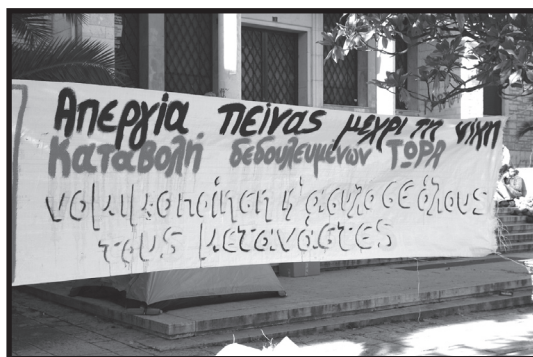 Απεργία πείνας μέχρι τη νίκη
Καταβολή δεδουλευμένων ΤΩΡΑ
νομιμοποίηση κ' άσυλο σε όλους
τους μετανάστες